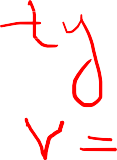 ty
v =